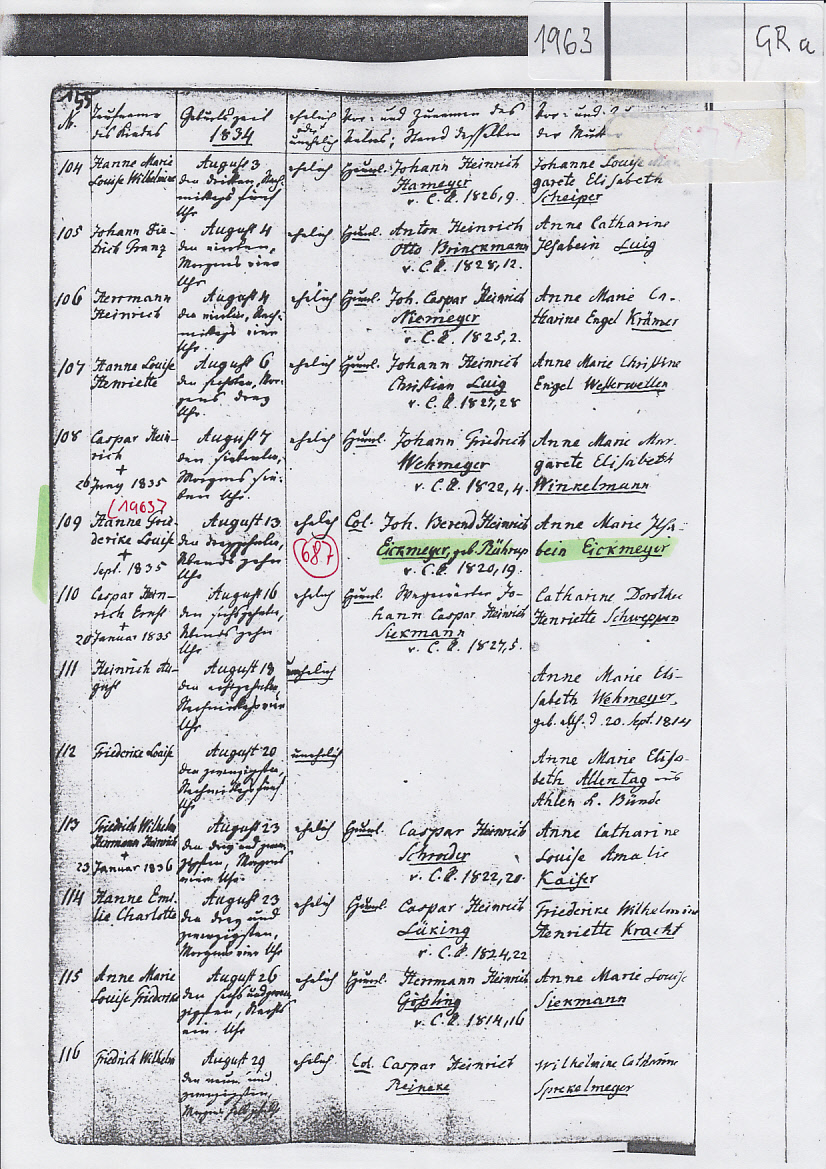 1963
GR a
155
N.
Taufname
des Kindes
Geburtszeit
1834
ehelich
oder
unehelich
Vor- und Zunamen des
Vaters, Stand desselben
Vor- und
der Mutter
104
Hanne Marie
Louise Wilhelmine
August 3
den dritten, Nach-
mittags fünf
Uhr
ehelich
Heuerl.
Johann Heinrich
Hameyer
v. C. B. 1826, 9.
Johanne Louise Mar-
garete Elisabeth
Scheiper
105
Johann Die-
trich Franz
August 4
den vierten,
Morgens vier
Uhr
ehelich
Heuerl.
Anton Heinrich
Otto Brinckmann
v. C. B. 1828, 12.
Anne Catharine
Ilsabein Luig
106
Herrmann
Heinrich
August 4
den vierten, Nach-
mittags vier
Uhr.
ehelich
Heuerl.
Joh. Caspar Heinrich
Niemeyer
v. C. B. 1825, 2.
Anne Marie Ca-
tharine Engel Krämer
107
Hanne Louise
Henriette
August 6
den sechsten, Mor-
gens drey
Uhr.
ehelich
Heuerl.
Johann Heinrich
Christian Luig
v. C. B. 1827, 28
Anne Marie Christine
Engel Westerwellen
108
Caspar Hein-
rich
+
26 Juny 1835
August 7
den siebenten,
Morgens sie-
ben Uhr.
ehelich
Heuerl.
Johann Friedrich
Wehmeyer
v. C. B. 1822, 4.
Anne Marie Mar-
garete Elisabeth
Winkelmann
(1963)
109
Hanne Frie-
derike Louise
+
Sept. 1835
August 13
den dreyzehnten,
Abends zehn
Uhr
ehelich
687
Col.
Joh. Berend Heinrich
Eickmeyer, geb. Rührup
v. C. B. 1820, 19.
Anne Marie Ilsa-
bein Eickmeyer
110
Caspar Hein-
rich Ernst
20 Januar 1835
August 16
den sechszehnten,
Abends zehn
Uhr
ehelich
Heuerl.
Wegewärter Jo-
hann Caspar Heinrich
Siekmann
v. C. B. 1827, 5.
Catharine Dorothee
Henriette Schweppen
111
Heinrich Au-
gust
August 18
den achtzehnten,
Nachmittags vier
Uhr
unehelich
Anne Marie Eli-
sabeth Wehmeyer,
geb. 20. Sept. 1814
112
Friederike Louise
August 20
den zwanzigsten,
Nachmittags fünf
Uhr
unehelich
Anne Marie Elisa-
beth Allentag aus
Ahlen b. Bünde
113
Friedrich Wilhelm
Herrmann Heinrich
+
23 Januar 1836
August 23
den drey und zwan-
zigsten, Morgens
vier Uhr.
ehelich
Heuerl.
Caspar Heinrich
Schroeder
v. C. B. 1822, 20.
Anne Catharine
Louise Amalie
Kaiser
114
Hanne Emi-
lie Charlotte
August 23
den drey und
zwanzigsten,
Morgens vier Uhr
ehelich
Heuerl.
Caspar Heinrich
Lüking
v. C. B. 1824, 22
Friederike Wilhelmine
Henriette Kracht
115
Anne Marie
Louise Friderike
August 26
den sechs und zwan-
zigsten, Nachts
ein Uhr
ehelich
Heuerl.
Herrmann Heinrich
Gößling
v. C. B. 1814, 16
Anne Marie Louise
Siekmann
116
Friedrich Wilhelm
August 29
den neun und
zwanzigsten,
ehelich
Col.
Caspar Heinrich
Reineke
Wilhelmine Catharine
Sprekelmeyer